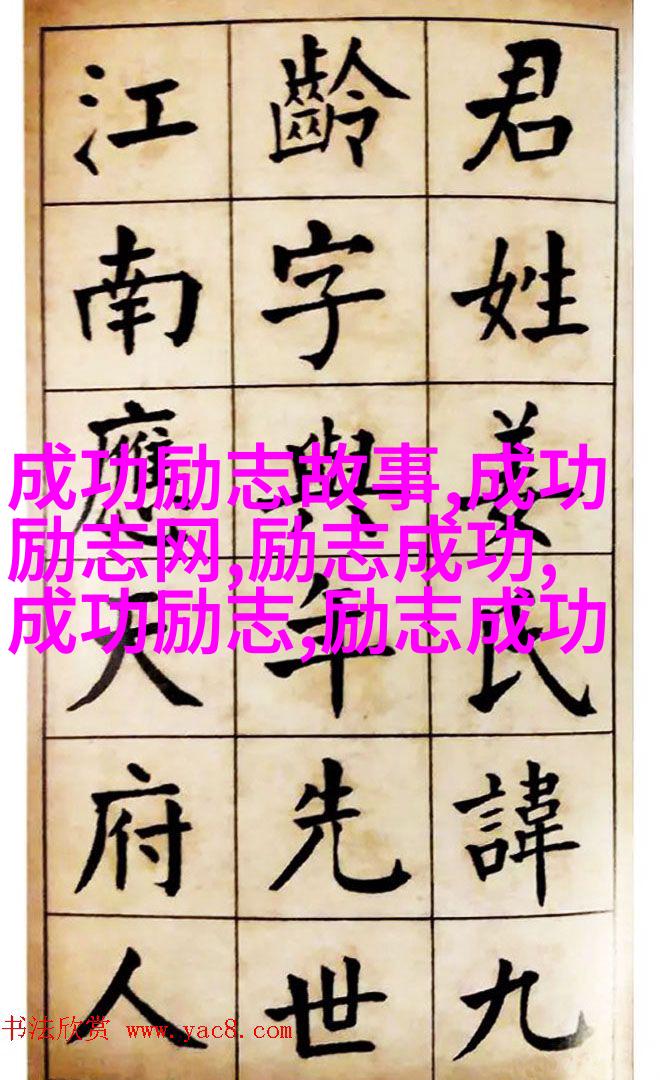 君姓姜氏諱九
齡字與年先世
江南應天府人
成功励志故事,成功
励志网,励志成功,
成功励志,励志成功
书法欣赏 www.yac8.com